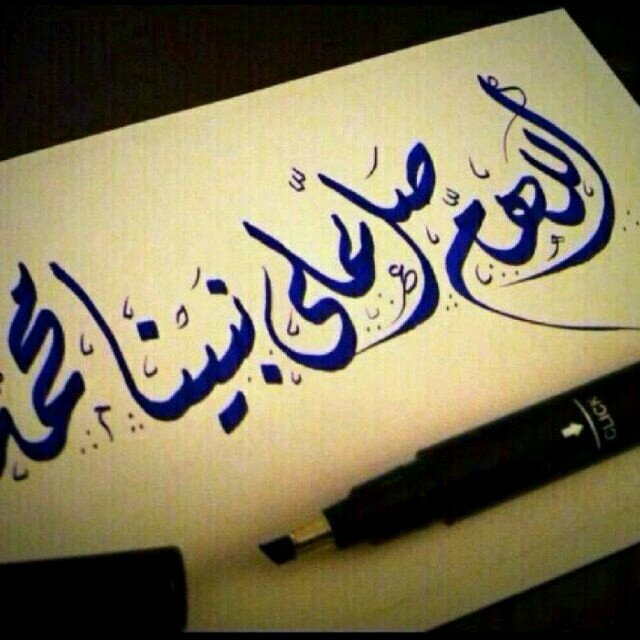 اللهم صل على نبينا محمد
CLICK